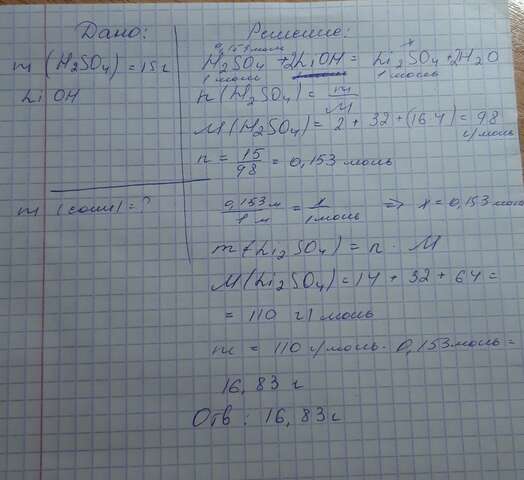 Дано:
m (H2SO4) = 15 г
LiOH
m (соли) = ?
Решение:
0,153 моль x
H2SO4 + 2LiOH = Li2SO4 + 2H2O
1 моль 1 моль
n (H2SO4) = m/M
M (H2SO4) = 2 + 32 + (16·4) = 98 г/моль
n = 15/98 = 0,153 моль
0,153 м / 1 м = x / 1 моль => x = 0,153 моль
m (Li2SO4) = n · M
M (Li2SO4) = 14 + 32 + 64 =
= 110 г/моль
m = 110 г/моль · 0,153 моль =
16,83 г
Отв: 16,83 г